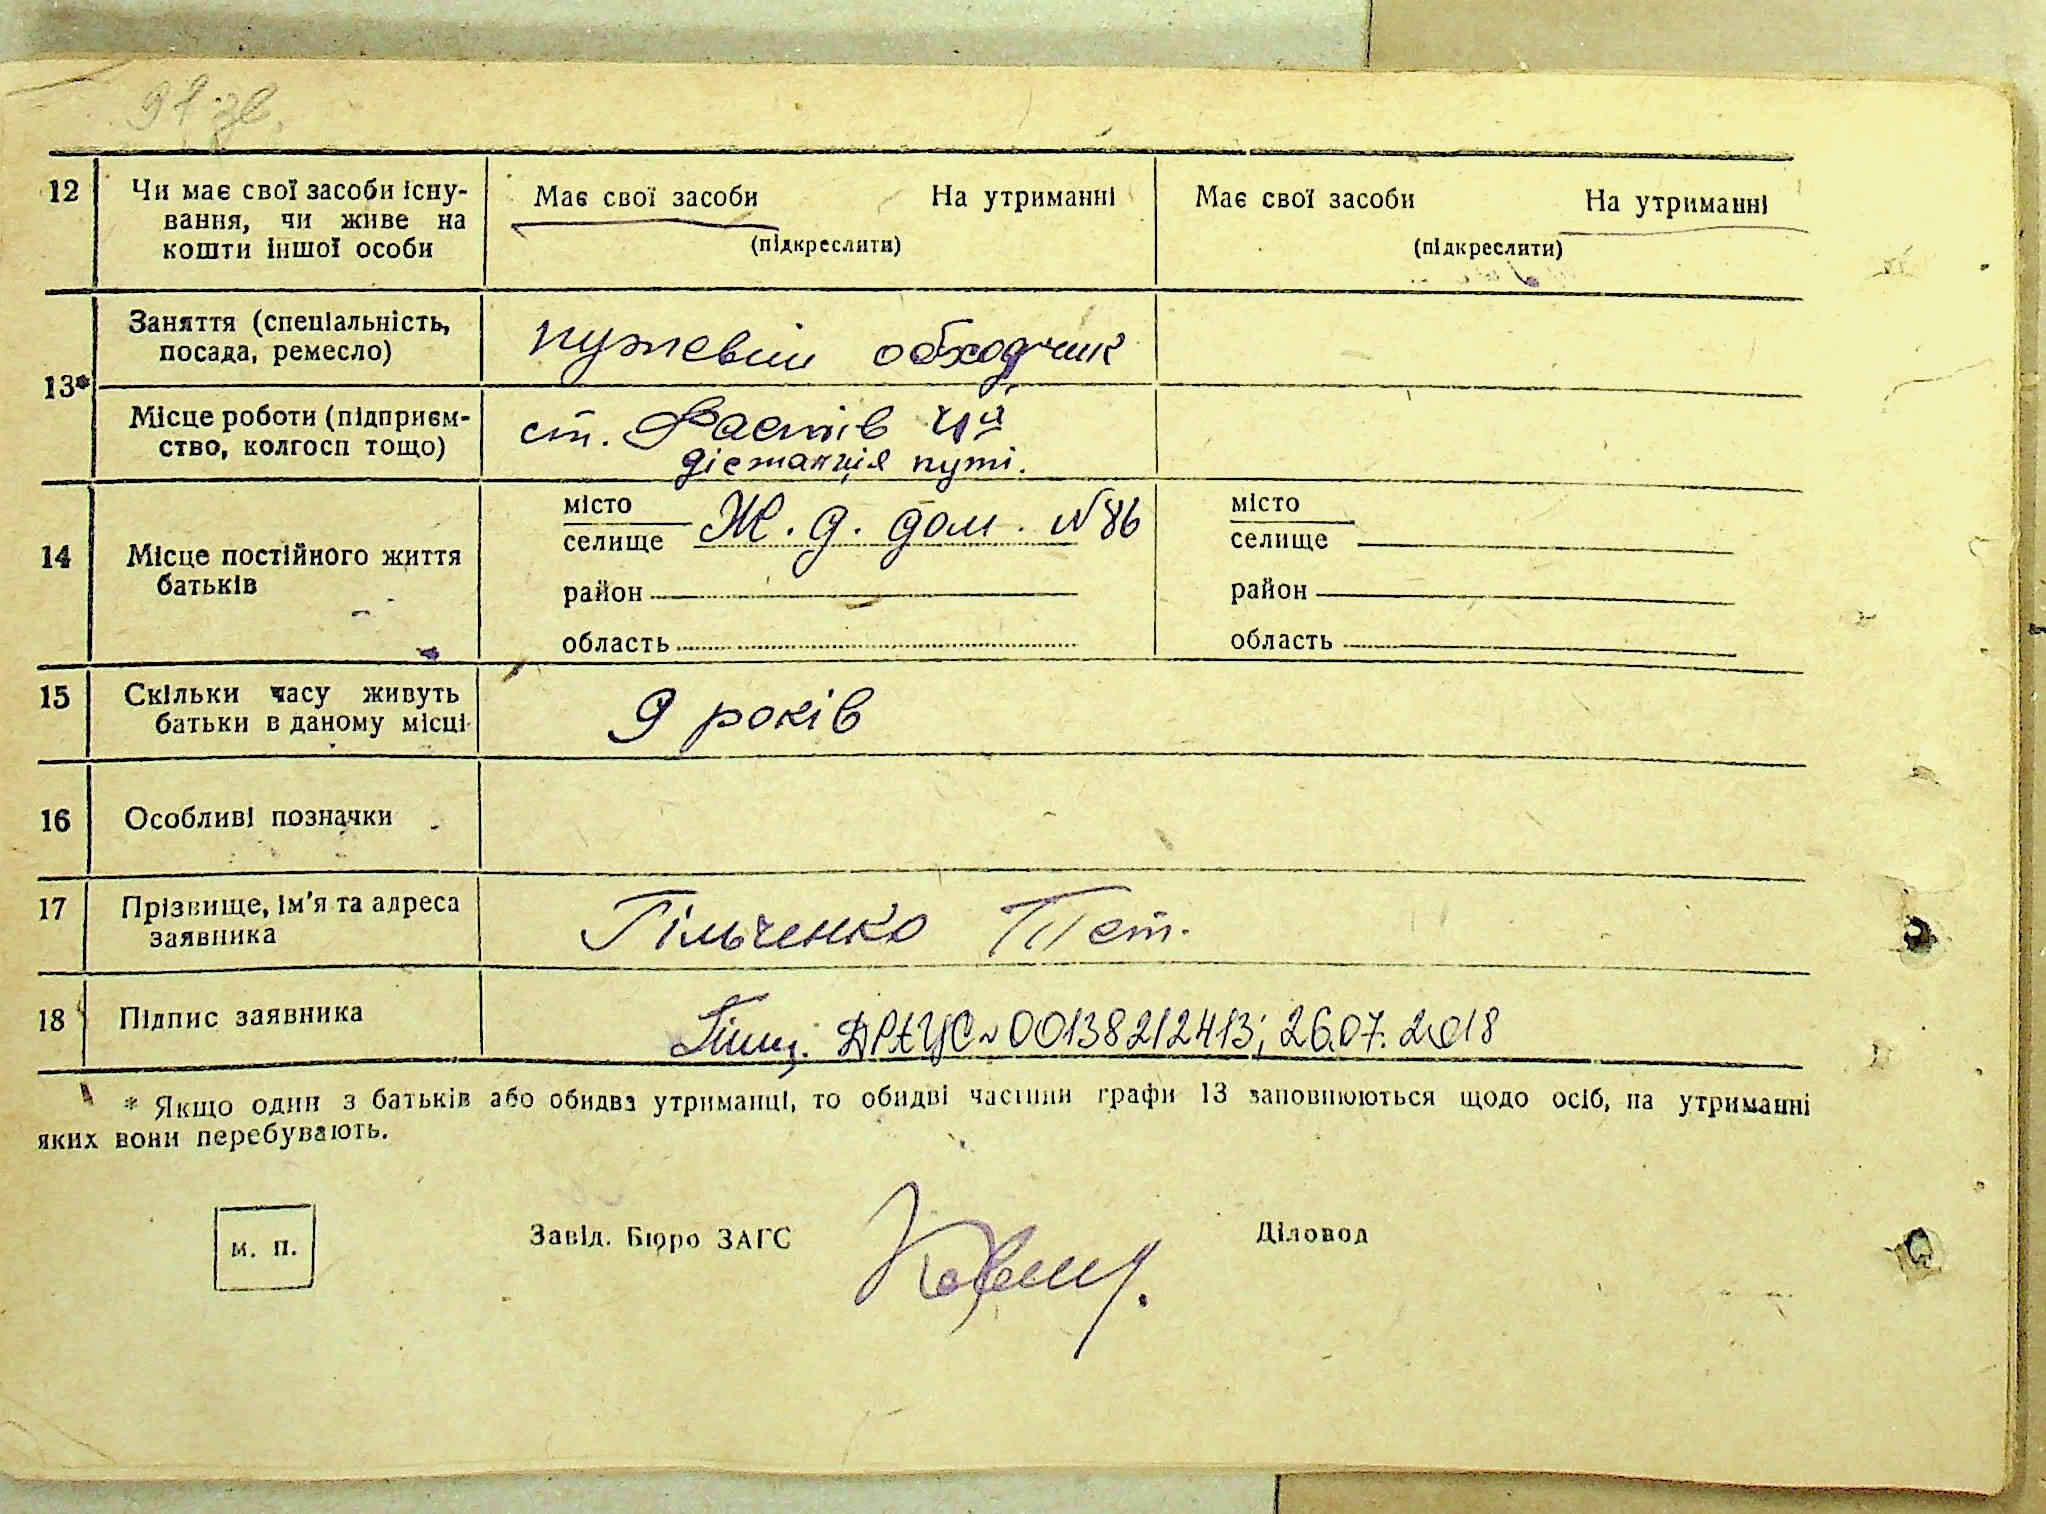 91 зв.
12 Чи має свої засоби існу- Має свої засоби На утриманні Має свої засоби На утриманні
вання, чи живе на
кошти іншої особи (підкреслити) (підкреслити)
Заняття (спеціальність, путевий обходчик
посада, ремесло)
13*
Місце роботи (підприєм- ст. Фастів 4ча
ство, колгосп тощо) дістанція путі.
14 Місце постійного життя місто Ж. д. дом. №86 місто
батьків селище селище
район район
область область
15 Скільки часу живуть 9 років
батьки в даному місці
16 Особливі позначки
17 Прізвище, ім'я та адреса Гільченко Пет.
заявника
18 Підпис заявника ДРАЦС 00138212413; 26.07.2018
* Якщо один з батьків або обидва утриманці, то обидві частини графи 13 заповнюються щодо осіб, на утриманні
яких вони перебувають.
м. п. Завід. Бюро ЗАГС Діловод